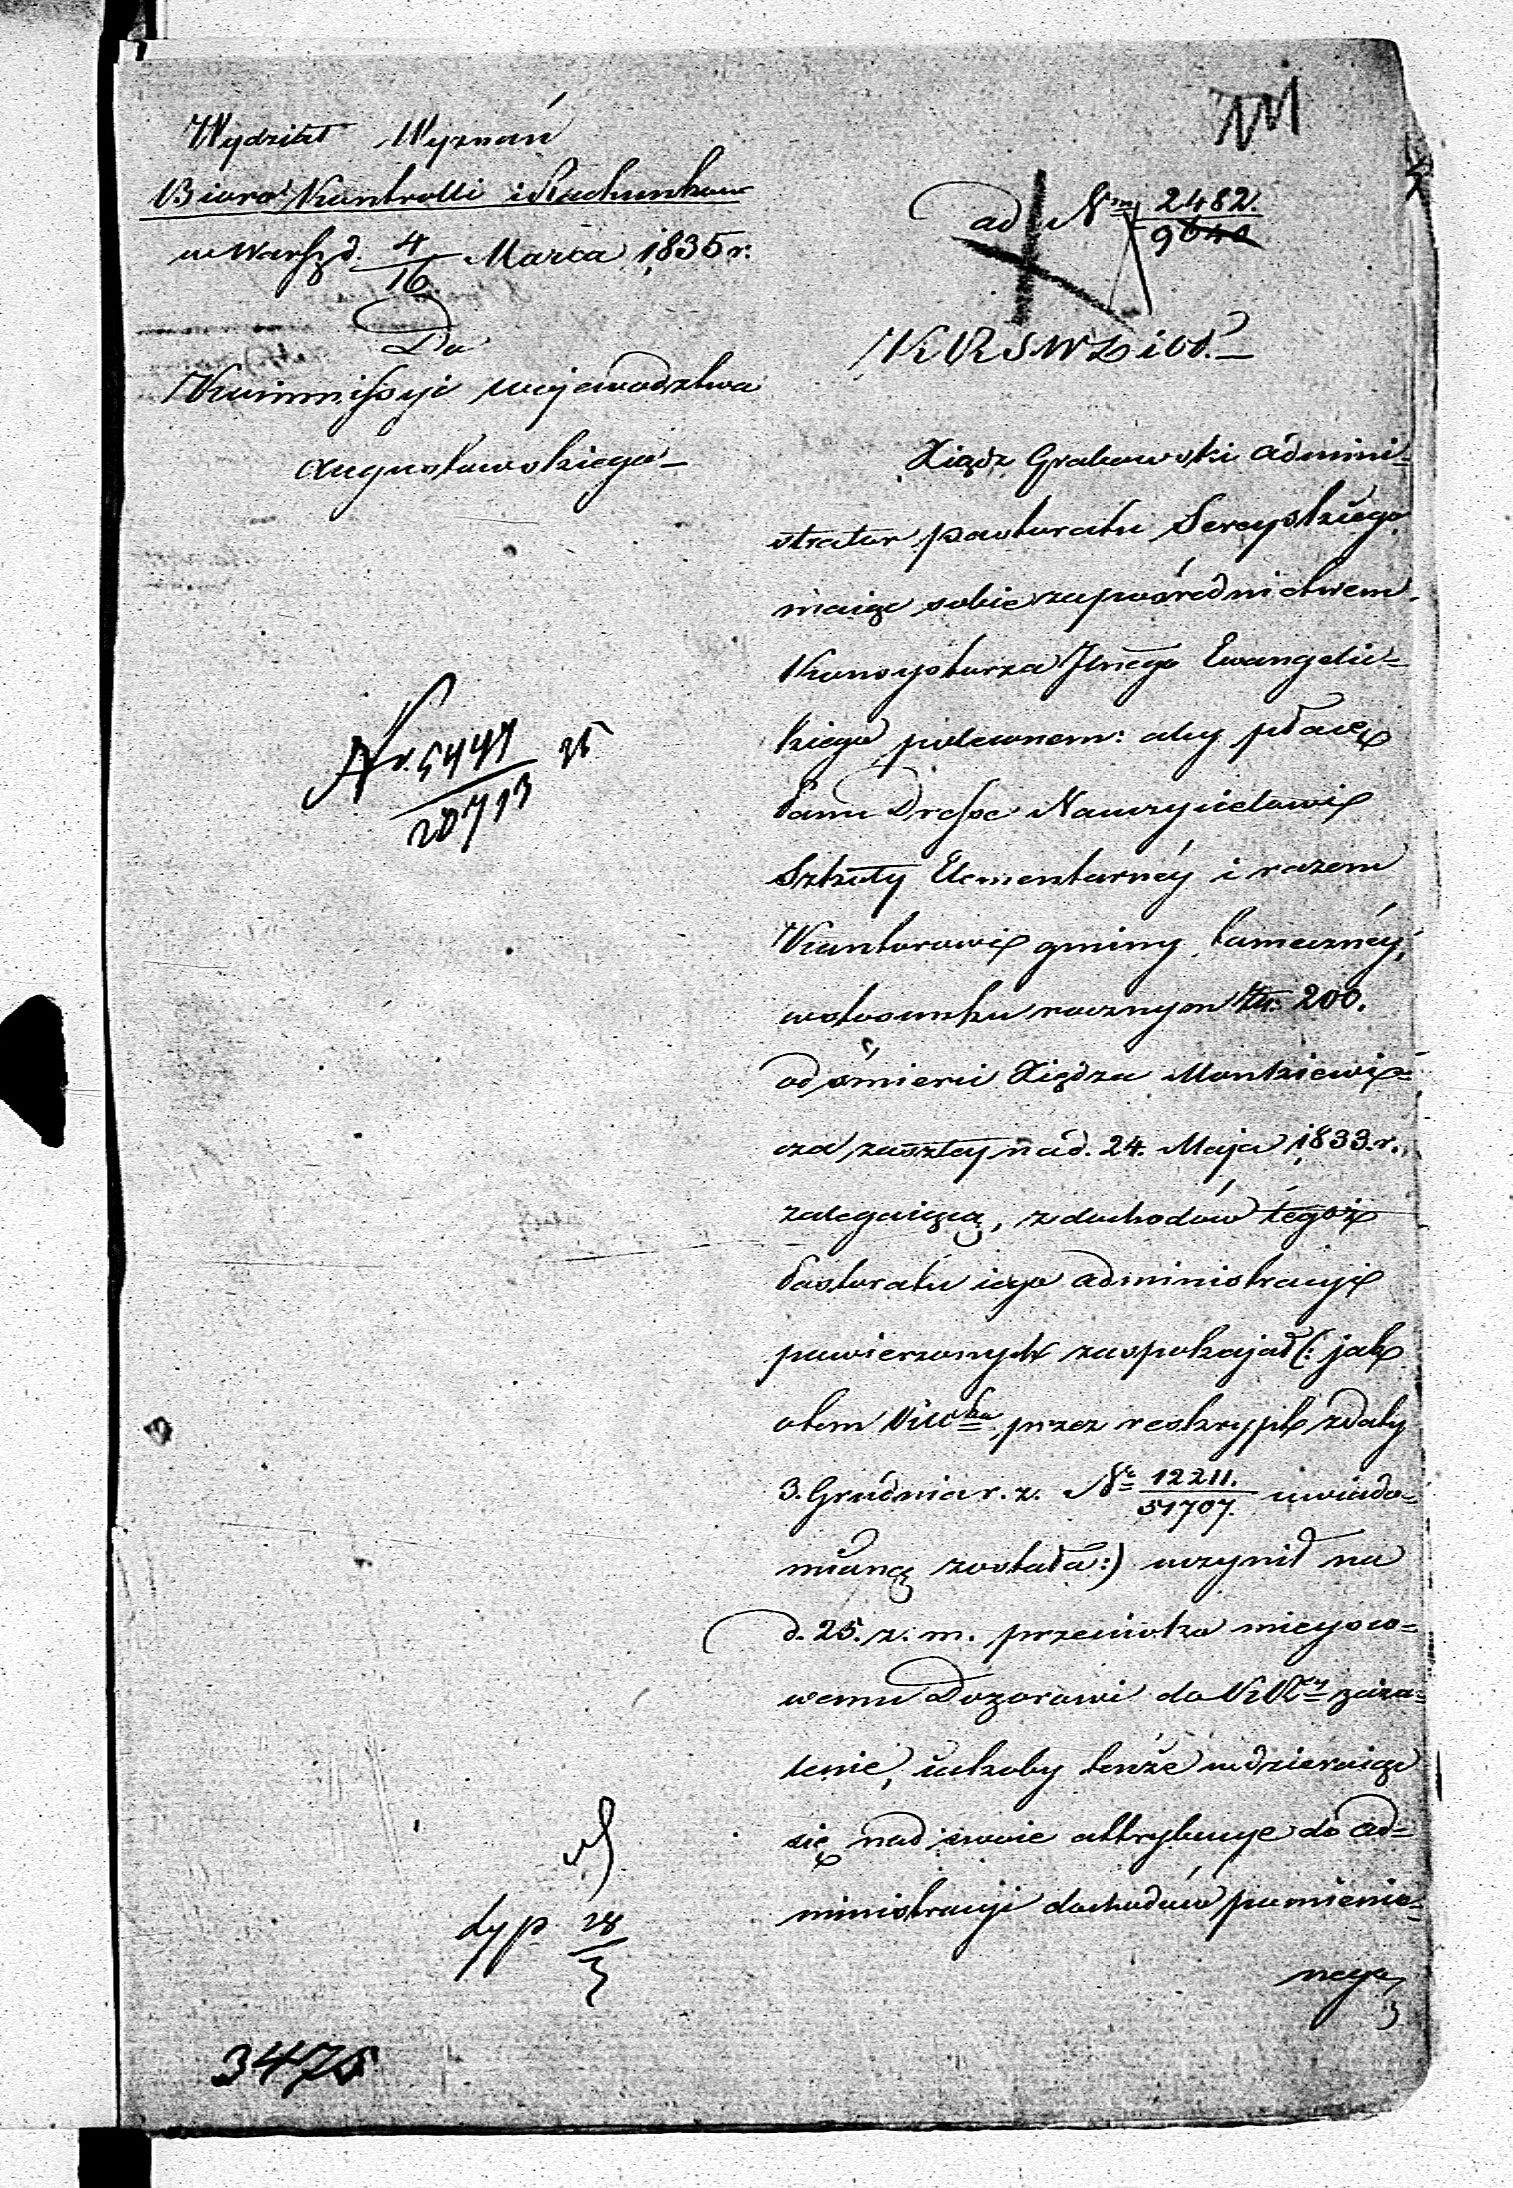 Wydział Wyznań
Biuro Kontrolli i Rachunków
w Warsz. d. 4/16 Marca 1835 r.
Do
Kommissyi Województwa
Augustowskiego
Nr. 5441/20713 35
typ 28/3
3475
ad Nrm 2482/9640
KRSWD i OP.
Xiądz Grabowski admini-
strator pastoratu Sereyskiego
maiąc sobie za pośrednictwem
Konsystorza Jlnego Ewangelic-
kiego polecone: aby płacę
Panu Dresse Nauczycielowi
Szkoły Elementarnéy i razem
Kantorowi gminy tameczney,
w stosunku rocznym Złr. 200.
od śmierci Xiędza Montkiewi-
cza zaszłey na d. 24. Maja 1833. r.
zalegaiącą, z dochodów tegoż
Pastoratu iego administracyi
powierzonych zaspokajał (: jak
o tem KWtwa przez reskrypt z daty
3. Grudnia r. z. No 12211./51707. uwiado-
mioną została :) uczynił na
d. 25. z. m. przeciwko mieysco-
wemu Dozorowi do KRey zaża-
lenie, iakoby tenże wdzieraiąc
się nad swoie attrybucye do ad-
ministracyi dochodów pomienio-
nego